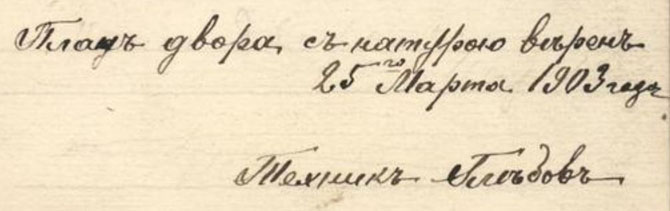 Планъ двора съ натурою вѣренъ
25го Марта 1903 года
Техникъ Глѣбовъ